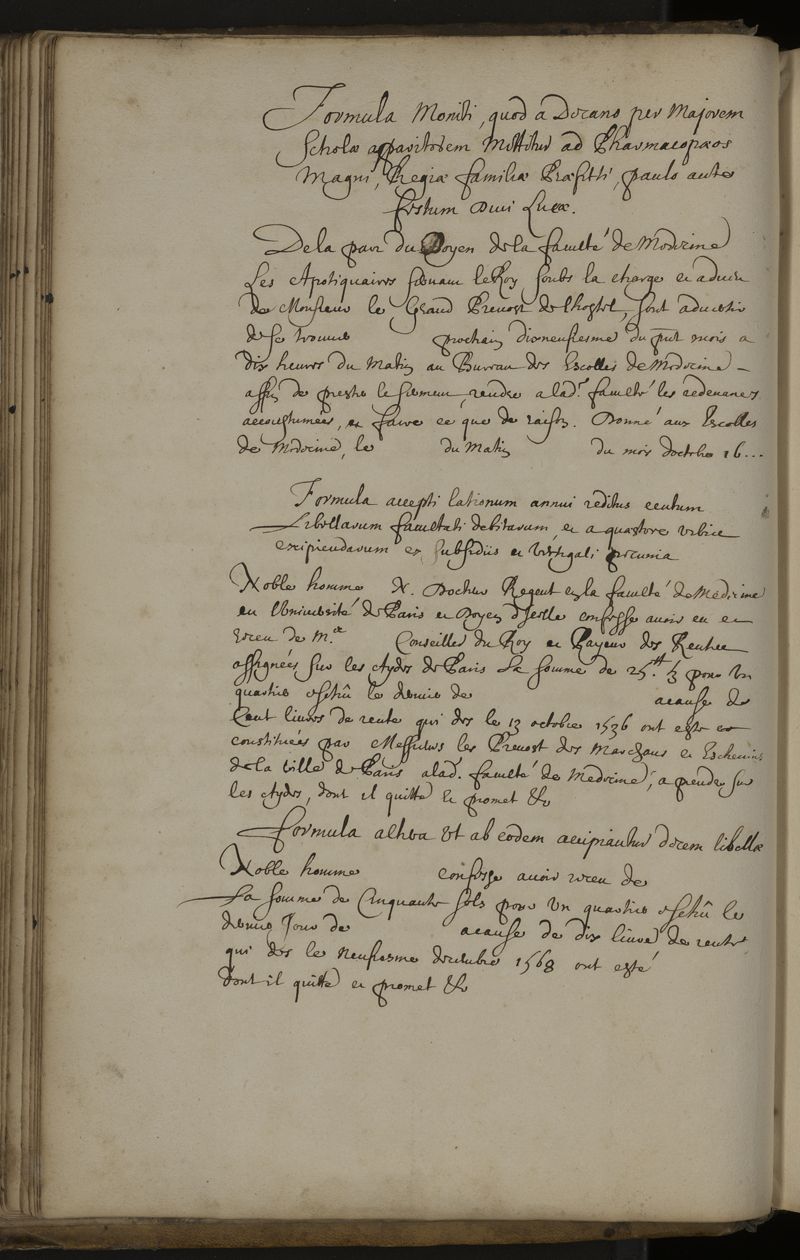 Formula Moniti, quod a Decano per Majorem
Scholæ apparitorem Mittitur ad Pharmacopæos
Magni, Regiæ familiæ Præfecti, paulo ante
festum Divi Lucæ.
De la part du Doyen de la faculté de Medecine
Les Apotiquaires suivant le Roy, soubs la charge et adveu
de Monsieur le Grand Prevost de l'hostel, sont advertis
de se trouver prochain dixneufiesme du pnt mois a
dix heures du Matin au Bureau des Escolles de Medecine
affin de prester le serment, rendre a lad. faculté les redevances
accoustumées, et faire ce que de raison. Donné aux Escolles
de Medecine, le du Matin du mois doctobre 16...
Formula accepti lationum annui reditus centum
Libellarum facultati debitarum, et a quæstore urbico
excipiendarum ex subsidiis et vectigali pecunia
Noble homme N. Docteur Regent en la faculté de Medecine
en l'Université de Paris et Doyen d'Icelle confesse avoir eu et
receu de M.e Conseiller du Roy et Payeur des Rentes
assignées sur les Aydes de Paris La somme de 25.tt pour Un
quartier escheu le dernier de acause de
Cent livres de rente qui des le 13 octobre 1536 ont esté
constituées par Messieurs les Prevost des Marchans et Eschevins
de la ville de Paris alad. faculté de Medecine, a prendre sur
les Aydes, dont il quitte et promet &c
Formula altera Ut ab eodem accipiantur decem libellæ
Noble homme confesse avoir receu de
La somme de Cinquante sols pour Un quartier escheu le
dernier Jour de acause de dix livres de rente
qui des le Neufiesme decembre 1568 ont esté
dont il quitte et promet &c